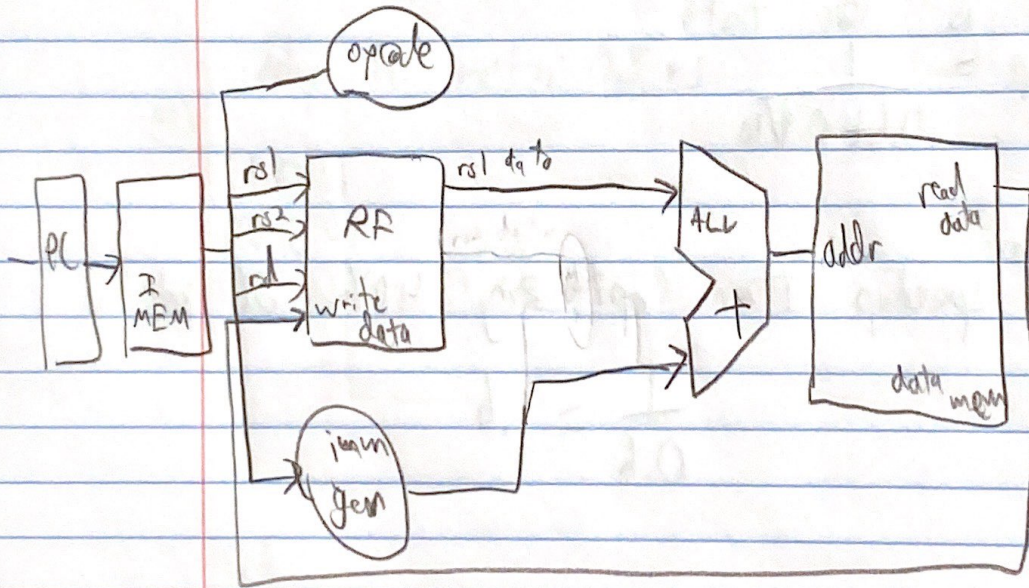 opcode
PC
I
MEM
rs1
rs2
rd
RF
write
data
rs1 data
ALU
+
addr
read
data
data
mem
imm
gen